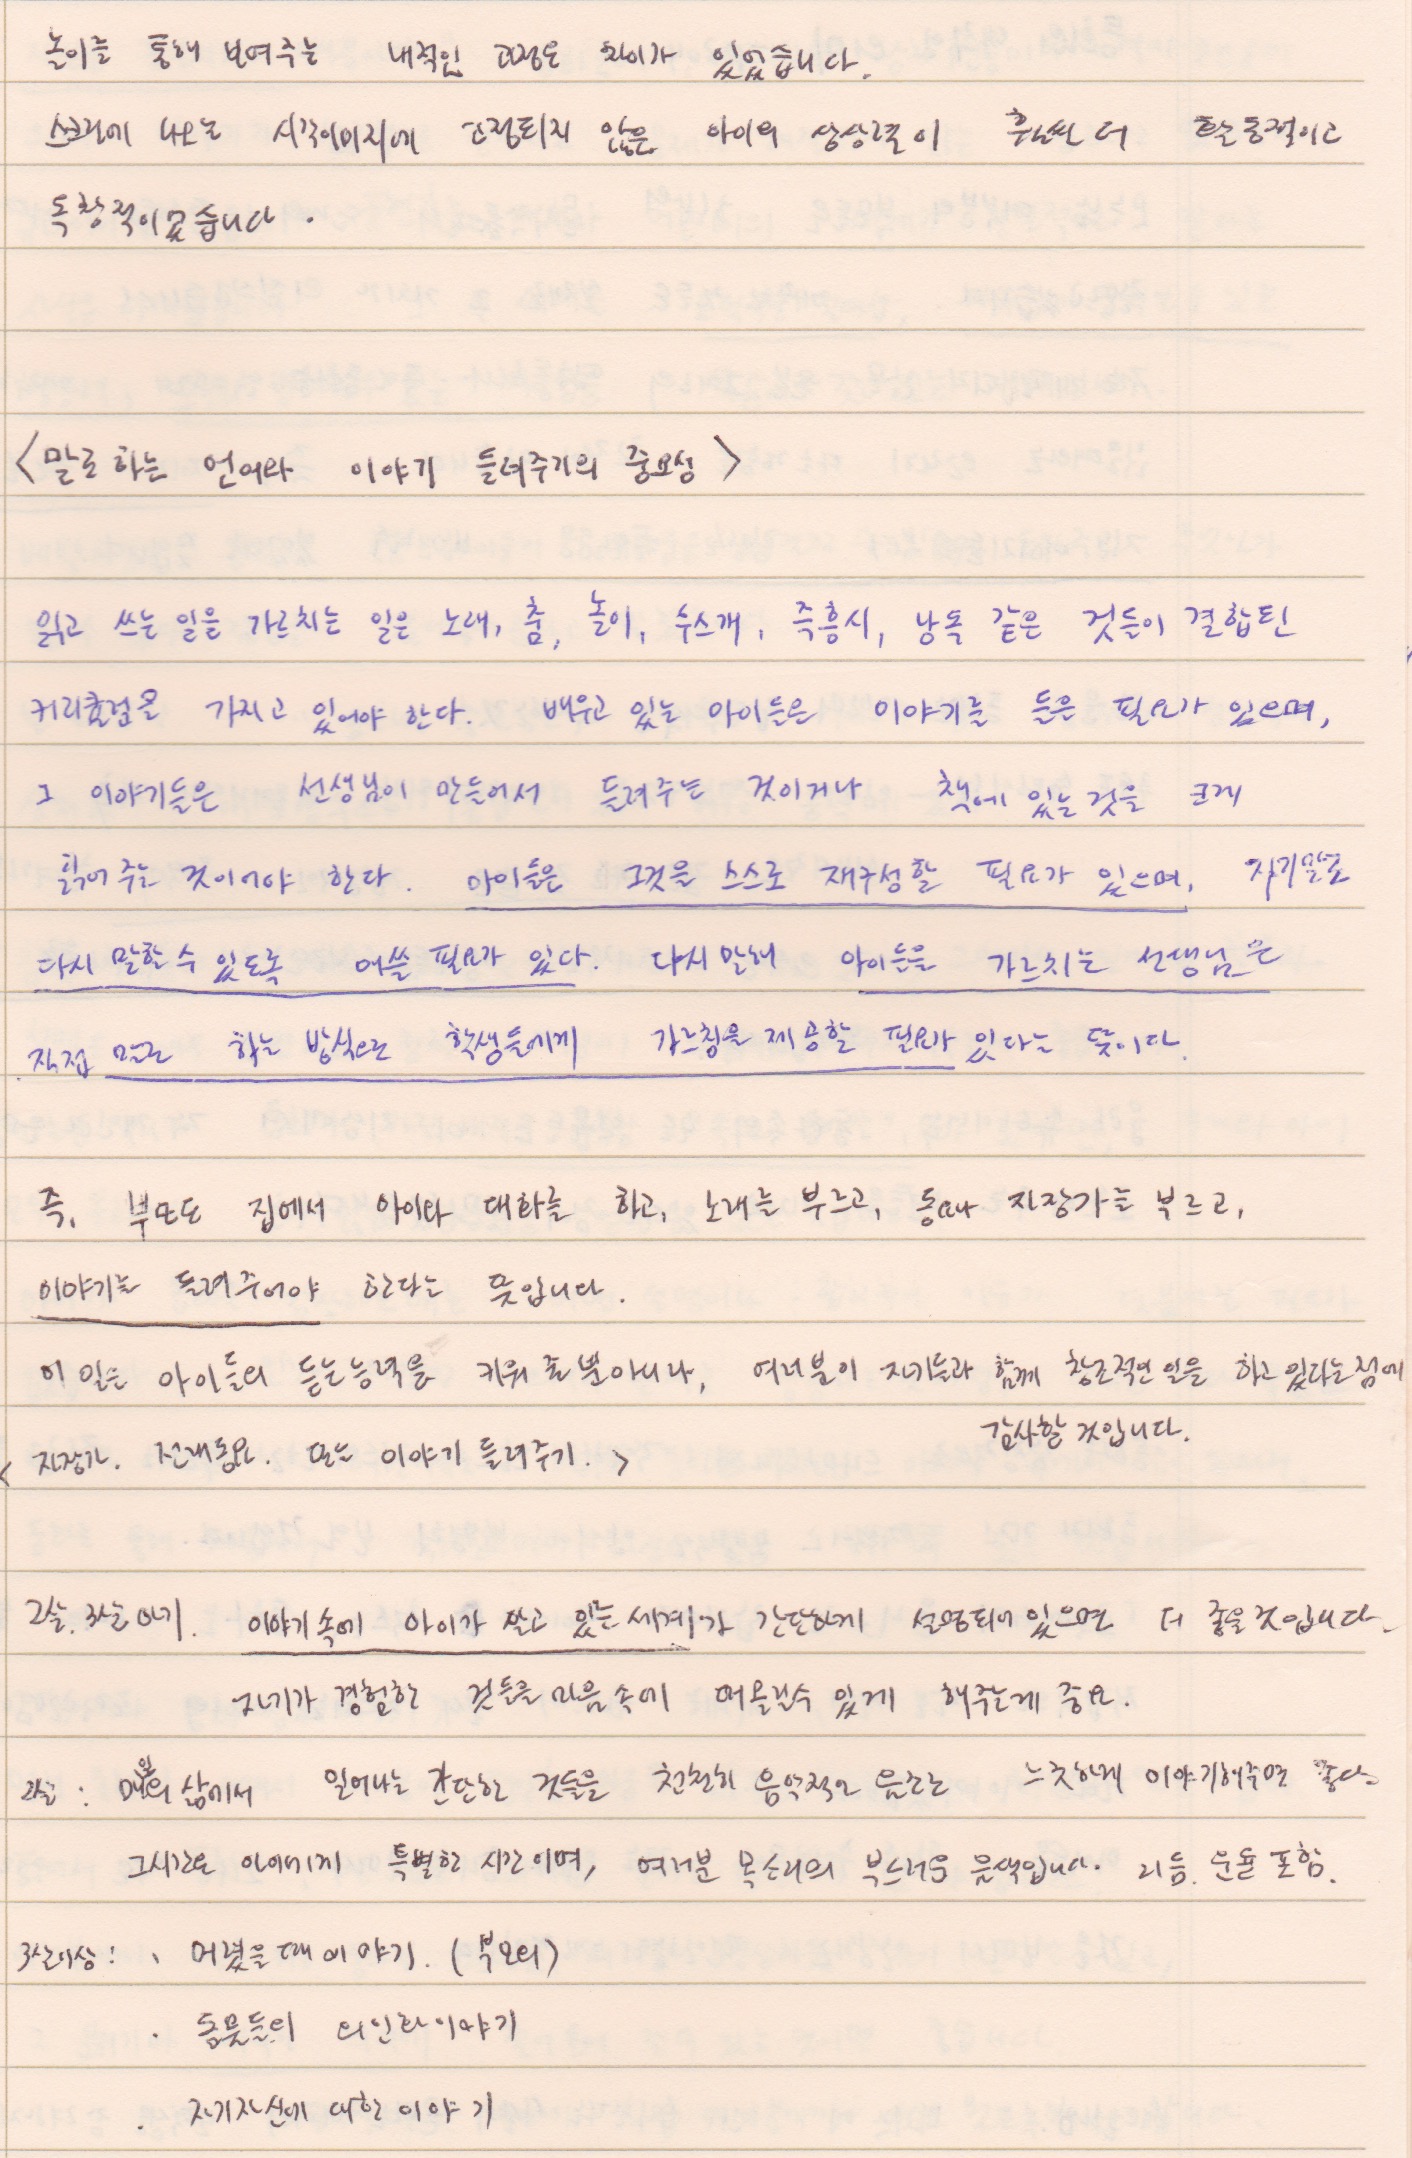 놀이를 통해 보여주는 내적인 과정은 차이가 있었습니다.
스크린에 나오는 시각이미지에 고정되지 않은 아이의 상상력이 훨씬 더 활동적이고
독창적이였습니다.
<말로 하는 언어와 이야기 들려주기의 중요성>
읽고 쓰는 일을 가르치는 일은 노래, 춤, 놀이, 우스개, 즉흥시, 낭독 같은 것들이 결합된
커리큘럼을 가지고 있어야 한다. 배우고 있는 아이들은 이야기를 들을 필요가 있으며,
그 이야기들은 선생님이 만들어서 들려주는 것이거나 책에 있는 것을 크게
읽어 주는 것이어야 한다. 아이들은 그것을 스스로 재구성할 필요가 있으며, 자기말로
다시 말할 수 있도록 애쓸 필요가 있다. 다시 말해 아이들을 가르치는 선생님은
직접 말로 하는 방식으로 학생들에게 가르침을 제공할 필요가 있다는 뜻이다.
즉, 부모도 집에서 아이와 대화를 하고, 노래를 부르고, 동요나 자장가를 부르고,
이야기를 들려주어야 한다는 뜻입니다.
이 일은 아이들의 듣는능력을 키워 줄 뿐아니라, 여러분이 자기들과 함께 창조적인 일을 하고 있다는 점에
감사할 것입니다.
<자장가. 전래동요. 또는 이야기 들려주기.>
2살. 3살 아기. 이야기 속에 아이가 살고 있는 세계가 간단하게 설명되어 있으면 더 좋을 것입니다.
자기가 경험한 것들을 마음 속에 떠올릴수 있게 해주는게 중요.
2살 : 매일의 삶에서 일어나는 간단한 것들을 천천히 음악적인 음조로 느긋하게 이야기해주면 좋다.
그시간은 아이에게 특별한 시간이며, 여러분 목소리의 부드러운 음색입니다. 리듬. 운율 포함.
3살이상 : · 어렸을 때 이야기. (부모의)
· 동물들의 의인화이야기
· 자기자신에 대한 이야기